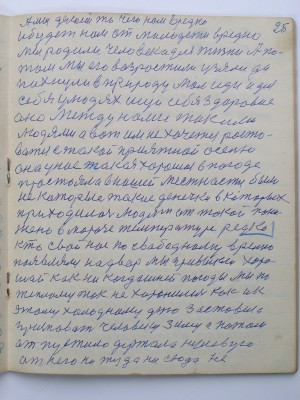 25
А мы делаем то чего нам вредно
и будет нам от молодости вредно
мы родили человека для жизни А по-
том мы его возростили узяли да
пихнули в природу мол иди и для
себя у людях ищи себя здоровие
оно между нами такими
людями а вот им не хочется расто-
ватся с такой приятной осенью
она у нас такая хорошая в погоде
простояла в нашей местности были
не которые такие денёчки в которых
приходилось людям от такой
в мароз температуре редко
кто свой нос по свабодному время
появляли на двор мы привыкли хоро-
шой как ни когда этой погоды мы по
тёплому так не хоронилися как им
этому холодному дню заставила
человеку зиму а потом
от пустила держала на
от него то туда то сюда не